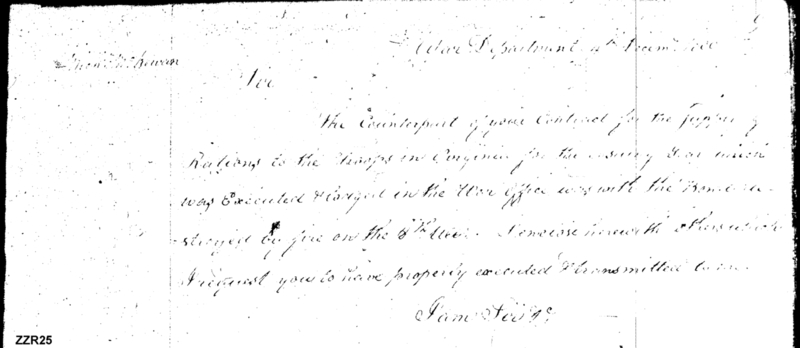 War Department 4th Decem. 1800
Sir
The Counterpart of your Contract for the Supply of
Rations to the Troops in Virginia for the ensuing Year which
was Executed & lodged in the War Office was with the Bond de-
stroyed by fire on the 8th Ulto. I enclose herewith others which
I request you to have properly executed & transmitted to me.
I am Sir &c
ZZR25